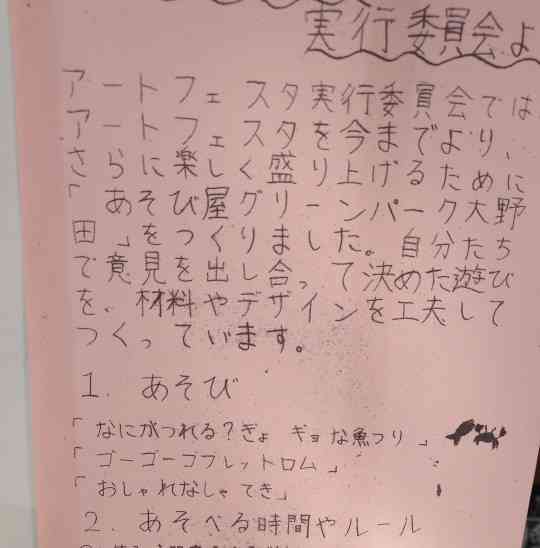 実行委員会よ
アートフェスタ実行委員会では
アートフェスタを今までより、
さらに楽しく盛り上げるために
「あそび屋グリーンパーク大野
田」をつくりました。自分たち
で意見を出し合って決めた遊び
を、材料やデザインを工夫して
つくっています。
1. あそび
「なにがつれる?ぎょ ギョな魚つり」
「ゴーゴーゴフレットロム」
「おしゃれなしゃてき」
2. あそべる時間やルール